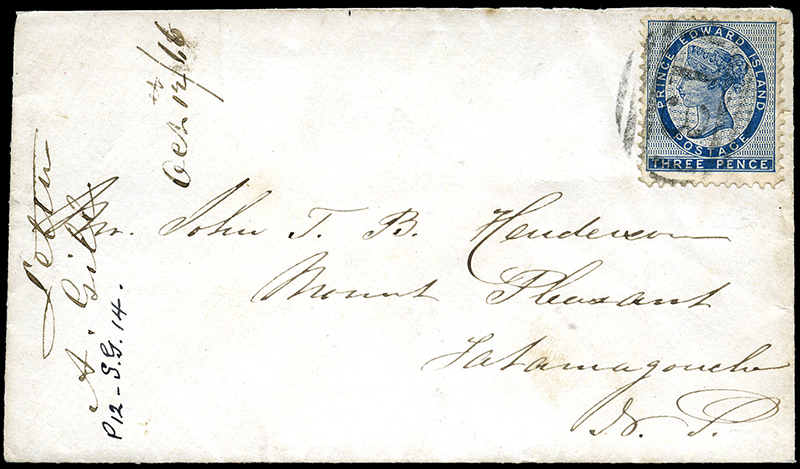 PRINCE EDWARD ISLAND
POSTAGE
THREE PENCE
Mr. John T. B. Henderson
Mount Pleasant
Tatamagouche
N. S.
Letter
A.
P12 - S.G. 14.
Oct 12th/66